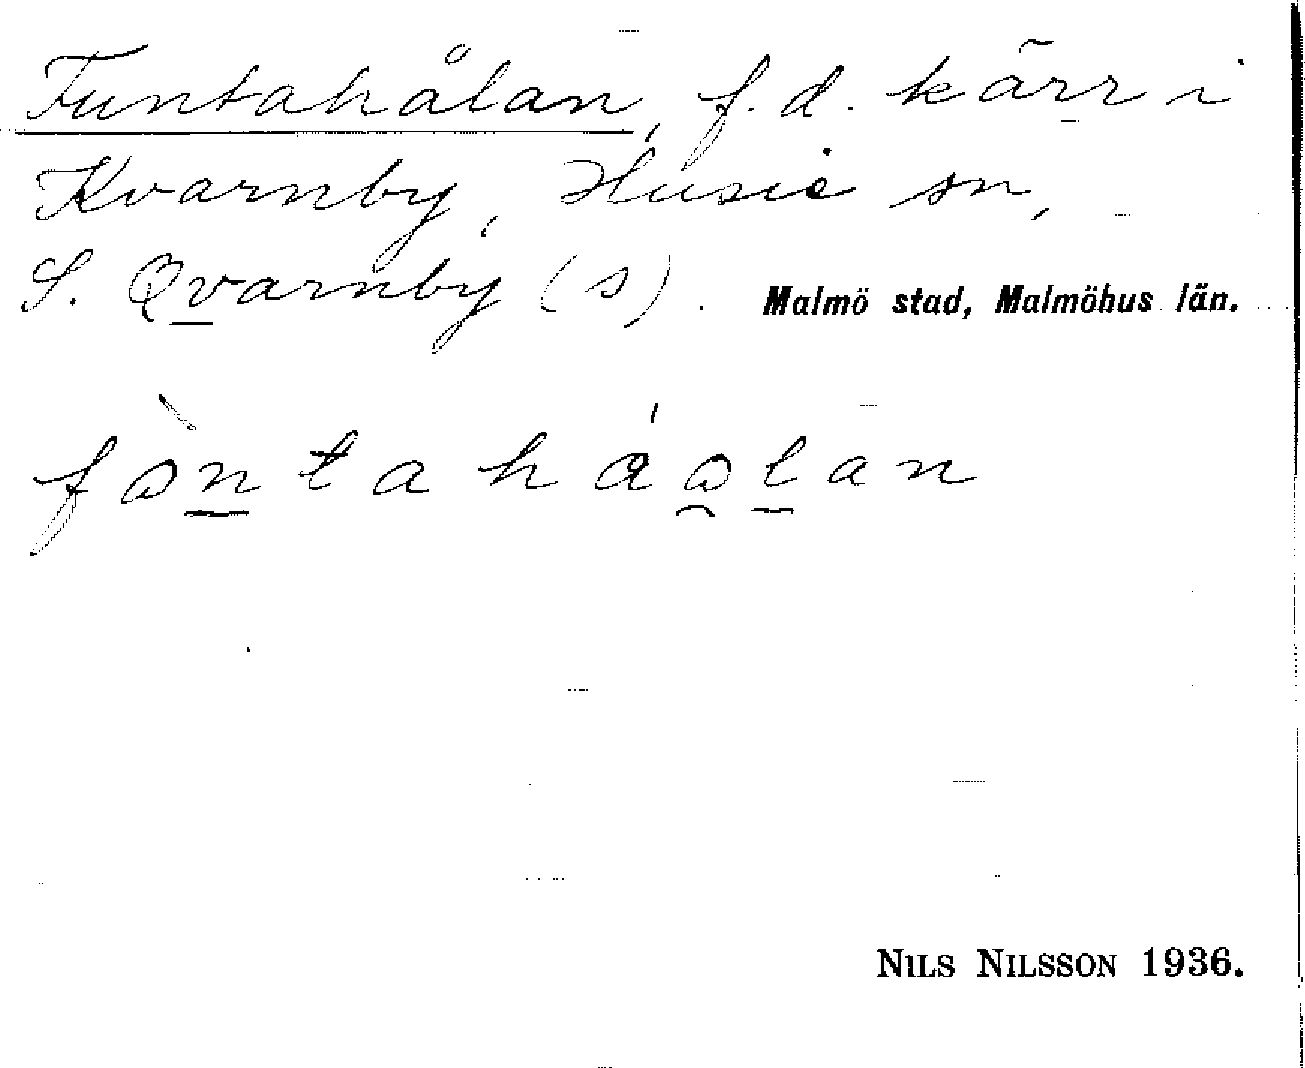 Funtahålan, f.d. kärr i
Kvarnby, Husie sn,
S. Qvarnby (s). Malmö stad, Malmöhus län.
fòntaháolan
NILS NILSSON 1936.